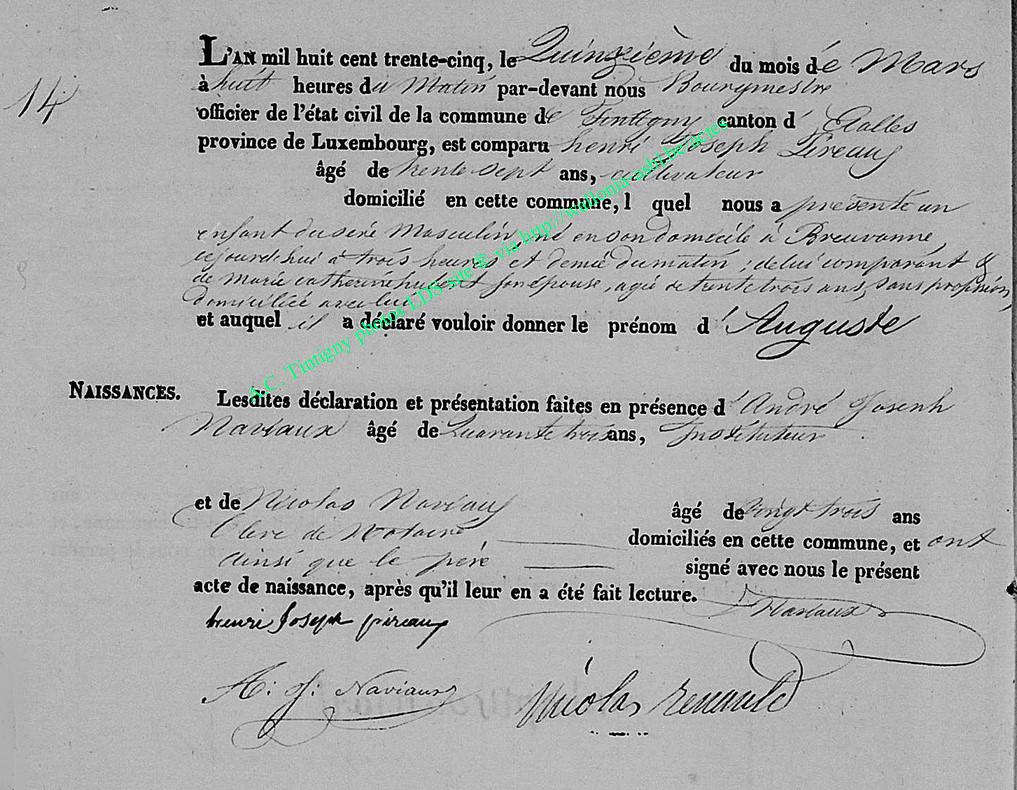 L'AN mil huit cent trente-cinq, le Quinzième du mois de Mars
14
à huit heures du Matin par-devant nous Bourgmestre
officier de l'état civil de la commune de Tintigny canton d'Etalles
province de Luxembourg, est comparu henri Joseph Pireaux
âgé de trente sept ans, cultivateur
domicilié en cette commune, l quel nous a présenté un
enfant du sexe Masculin, né en son domicile à Breuvanne,
cejourdhui à trois heures et demie du matin, de lui comparant &
de Marie catherine son épouse, agée de trente trois ans, sans profession,
domiciliée avec lui
et auquel il a déclaré vouloir donner le prénom d'Auguste
A.C. Tintigny photos LDS site @ via http://wallonia-asbl.be/actes
NAISSANCES.
Lesdites déclaration et présentation faites en présence d'André Joseph
Naviaux âgé de Quarante trois ans, Instituteur
et de Nicolas Naviaux âgé de vingt trois ans
Clerc de Notaire domiciliés en cette commune, et ont
ainsi que le père signé avec nous le présent
acte de naissance, après qu'il leur en a été fait lecture.
henri Joseph pireaux Naviaux
A: J: Naviaux Nicolas renauld